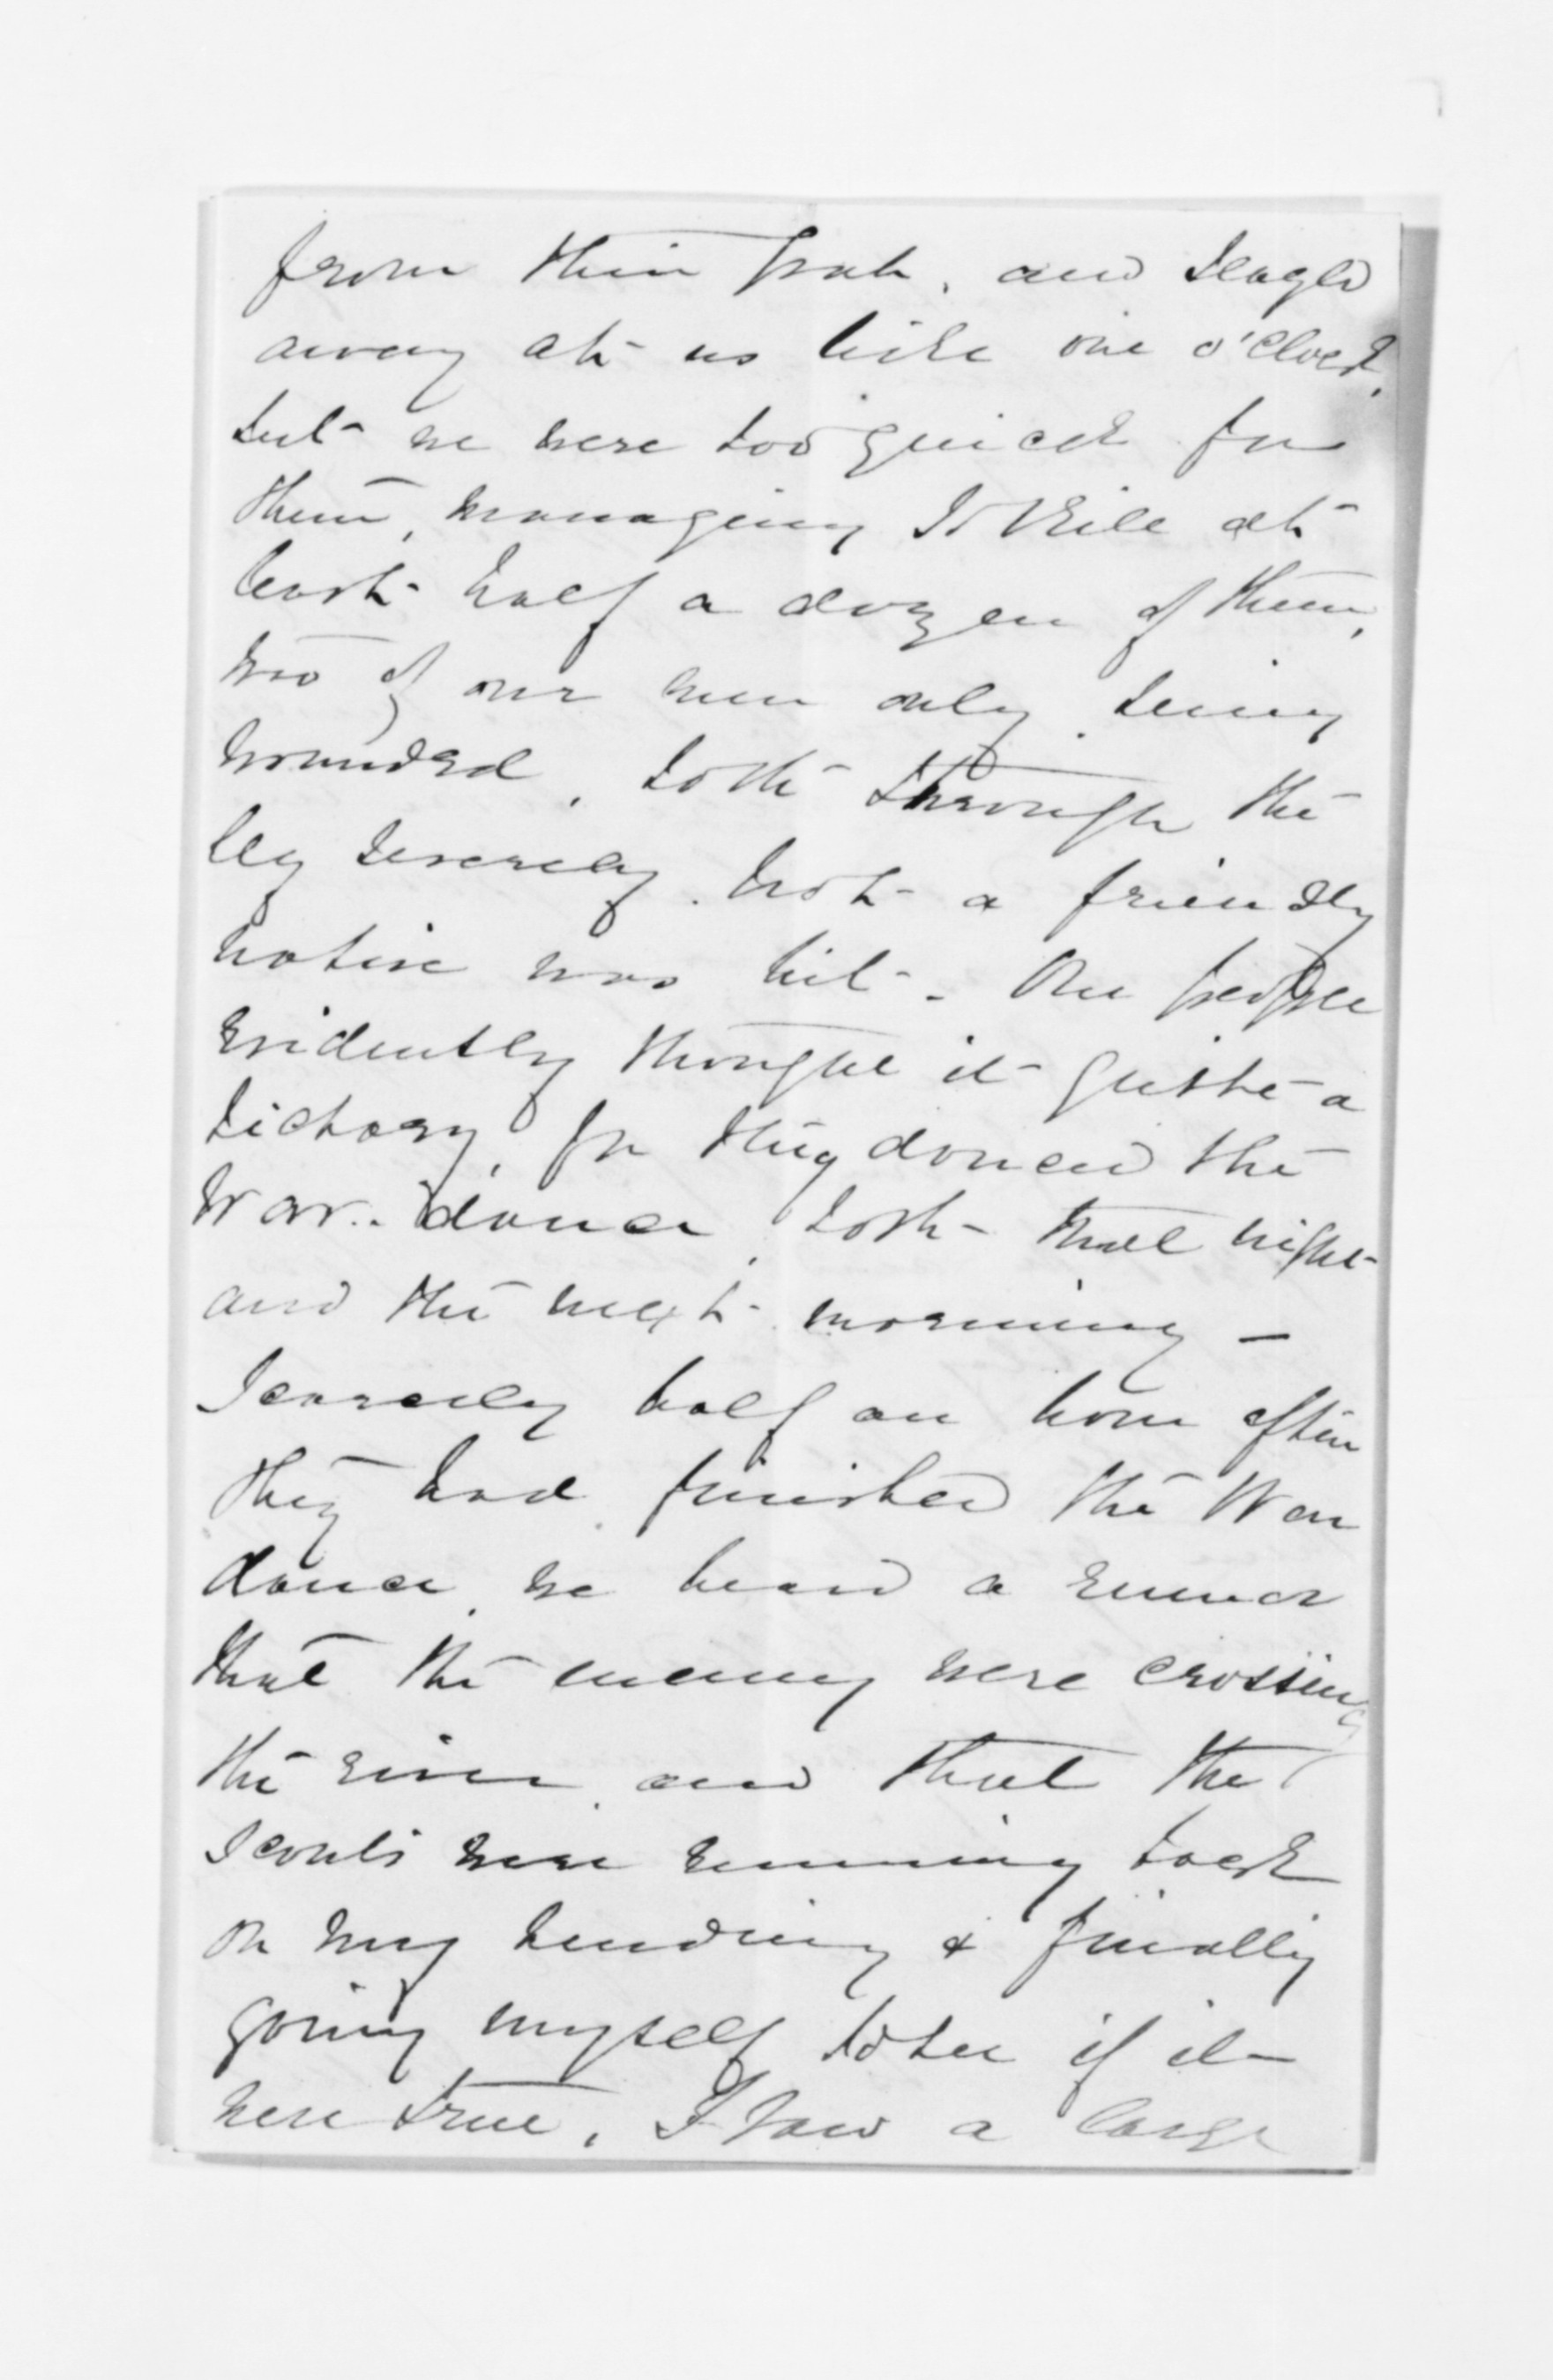 from their pah, and blazed
away at us like one o'clock,
but we were too quick for
them, managing to kill at
least half a dozen of them,
two of our men only being
wounded, both through the
leg severely. Not a friendly
native was hit. Our people
evidently thought it quite a
victory, for they danced the
War-dance, both that night
and the next morning —
Scarcely half an hour after
they had finished the War
dance, we heard a rumor
that the enemy were crossing
the river and that the
scouts were running back
on my sending & finally
going myself to see if it
were true, I saw a large